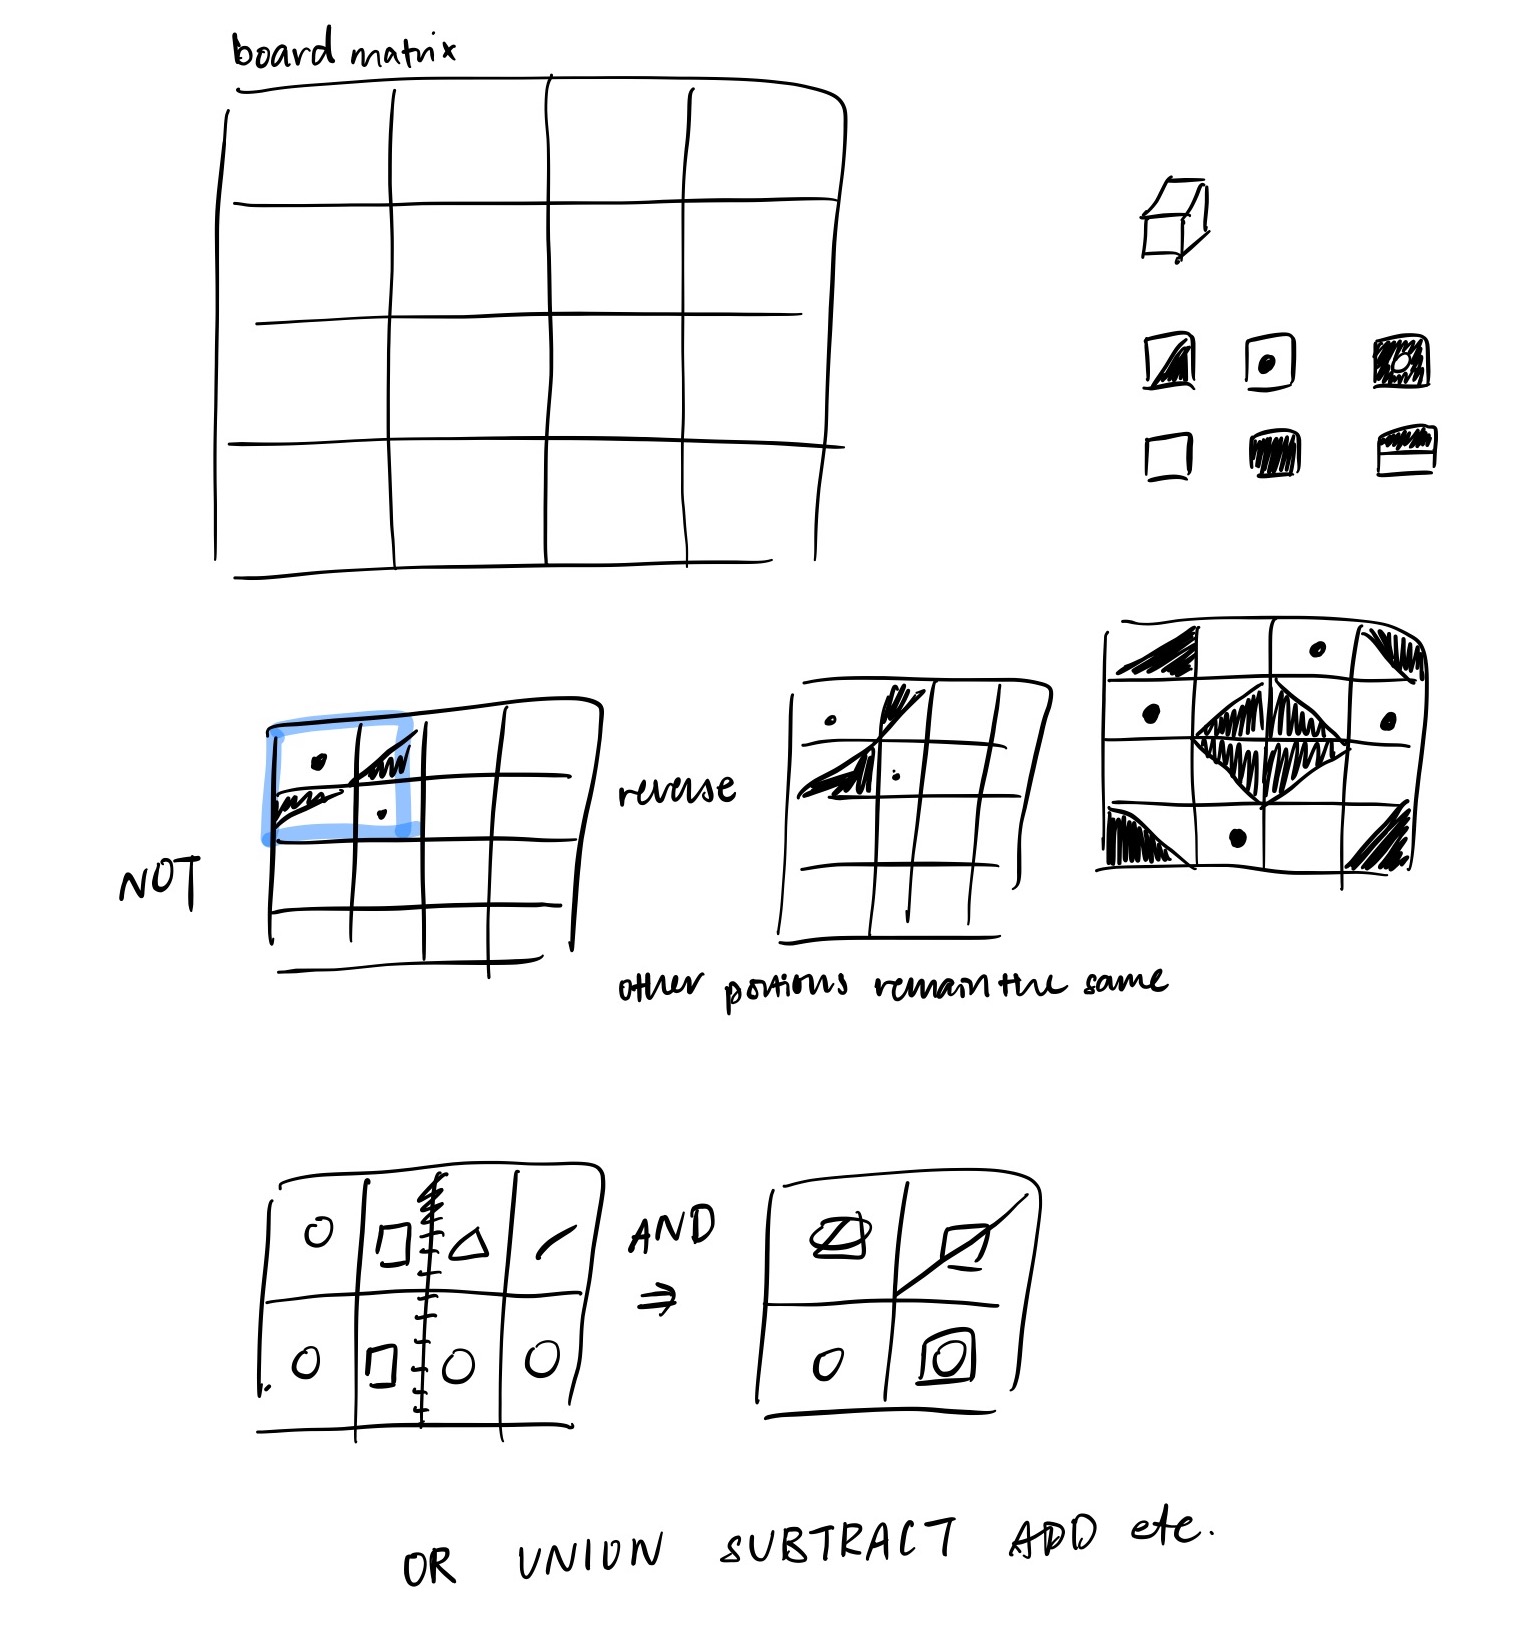 board matrix
reverse
NOT
other portions remain the same
AND
OR UNION SUBTRACT ADD etc.